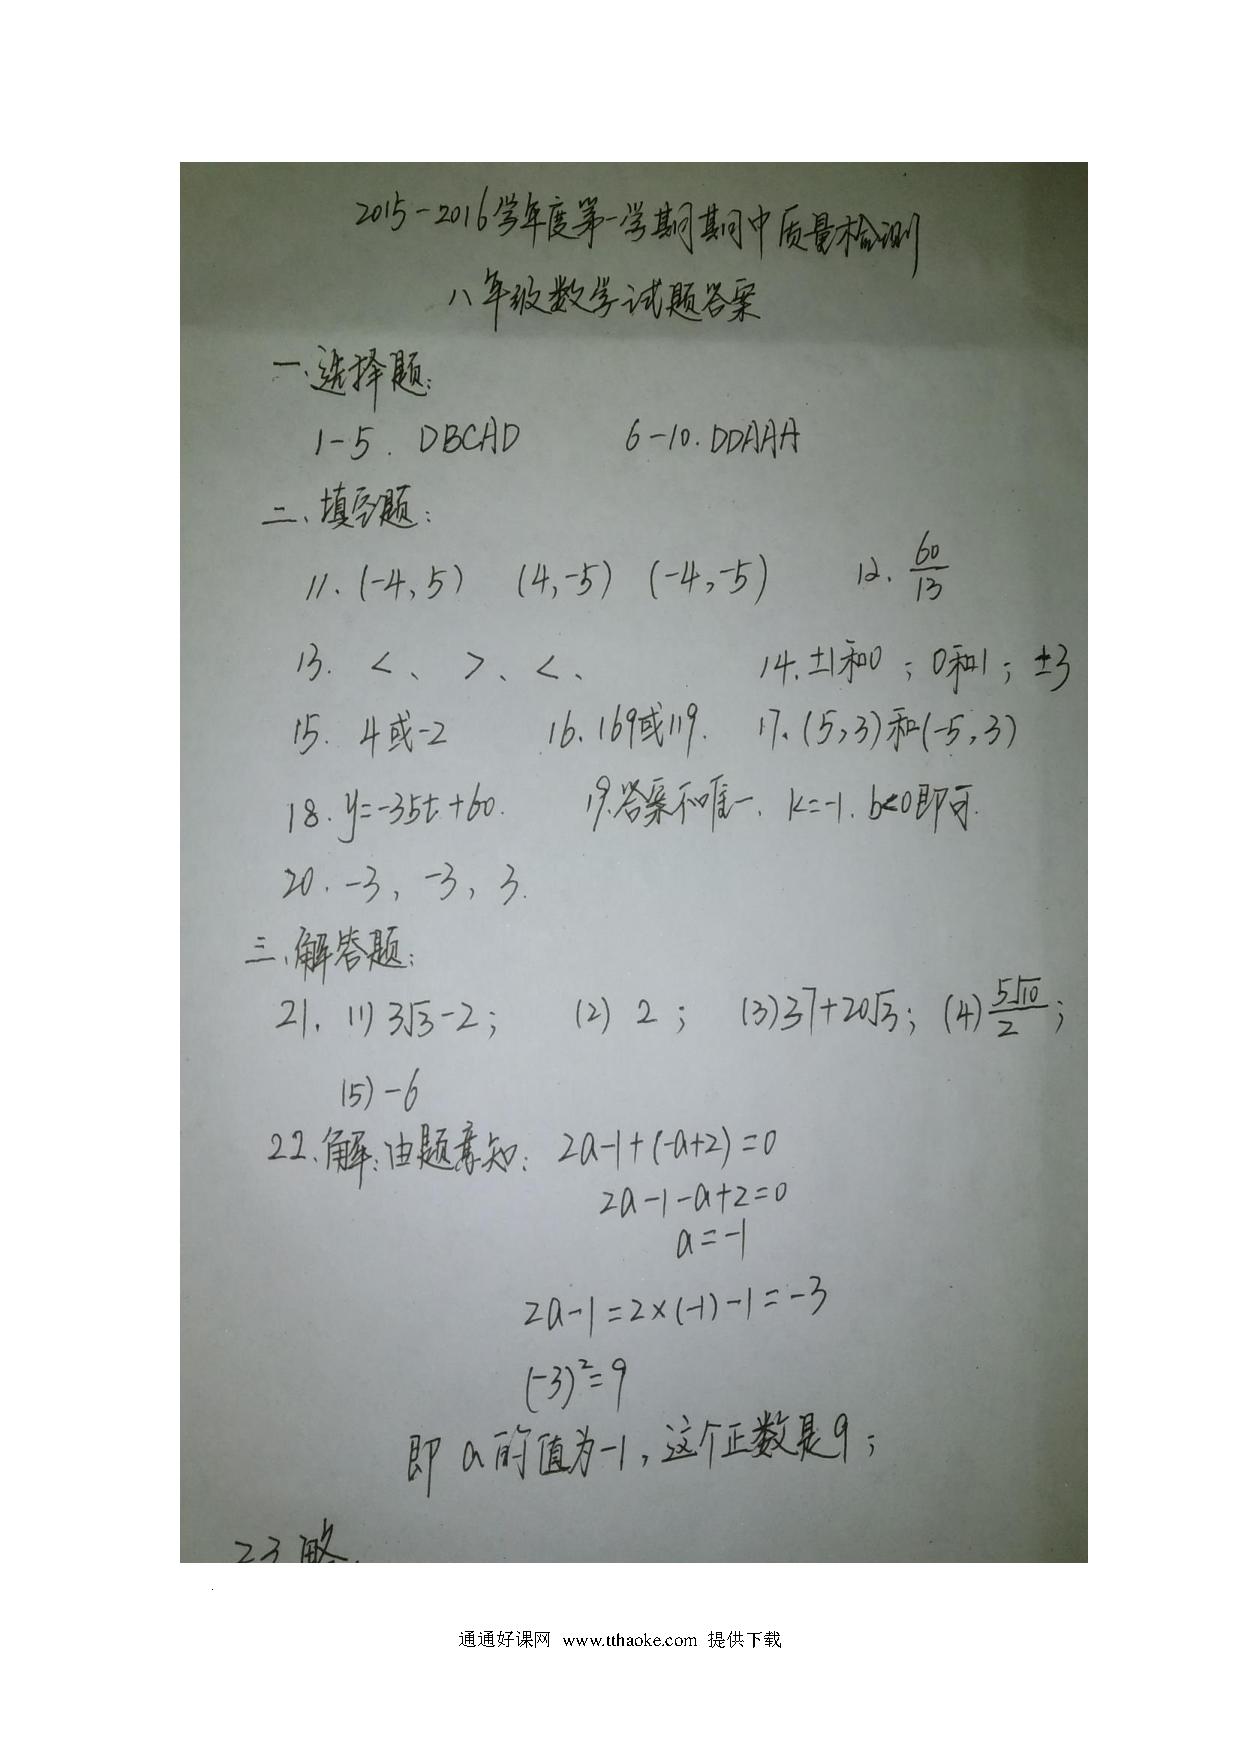 2015-2016学年度第一学期期中质量检测
八年级数学试题答案
一、选择题:
1-5. DBCAD 6-10. DDAAA
二、填空题:
11. (-4,5) (4,-5) (-4,-5) 12. 60/13
13. < 、 > 、 < 、 14. ±1和0 ; 0和1 ; ±3
15. 4或-2 16. 169或119. 17. (5,3)和(-5,3)
18. y=-35t+60. 19. 答案不唯一, k=-1. b<0即可.
20. -3, -3, 3.
三、解答题:
21. (1) 3√3-2; (2) 2 ; (3) 37+20√3; (4) 5√10/2 ;
(5) -6
22. 解: 由题意知: 2a-1+(-a+2)=0
2a-1-a+2=0
a=-1
2a-1=2×(-1)-1=-3
(-3)²=9
即 a的值为-1, 这个正数是9;
23 略.
通通好课网 www.tthaoke.com 提供下载